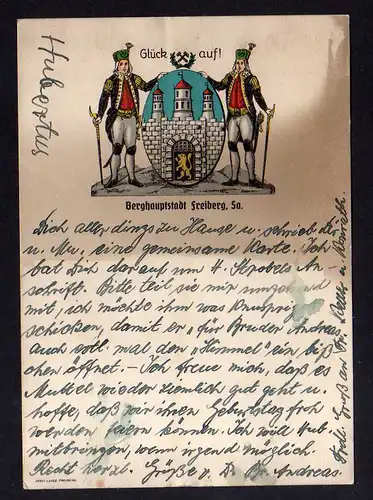 Glück auf!
Hubertus
Berghauptstadt Freiberg, Sa.
Dich allerdings zu Hause u. schrieb Dir
u. Mu. eine gemeinsame Karte. Ich
bat Dich darauf um H. An
schrift. Bitte teil sie mir umgehend
mit, ich möchte ihm was Knuspriges
schicken, damit er „für Bruder Andreas
auch evtl. mal den "Himmel" ein biß
chen öffnet. – Ich freue mich, daß es
Muttel wieder ziemlich gut geht u.
hoffe, daß wir ihren Geburtstag froh
werden feiern können. Ich will Hub.
mitbringen, wenn irgend möglich.
Recht herzl. Grüße v. D. Br. Andreas.
Gruß an u.